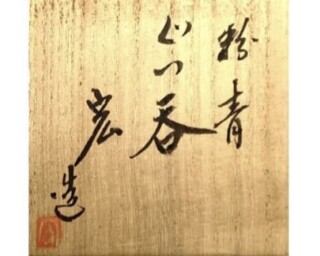 粉青
ぐい呑
宏造